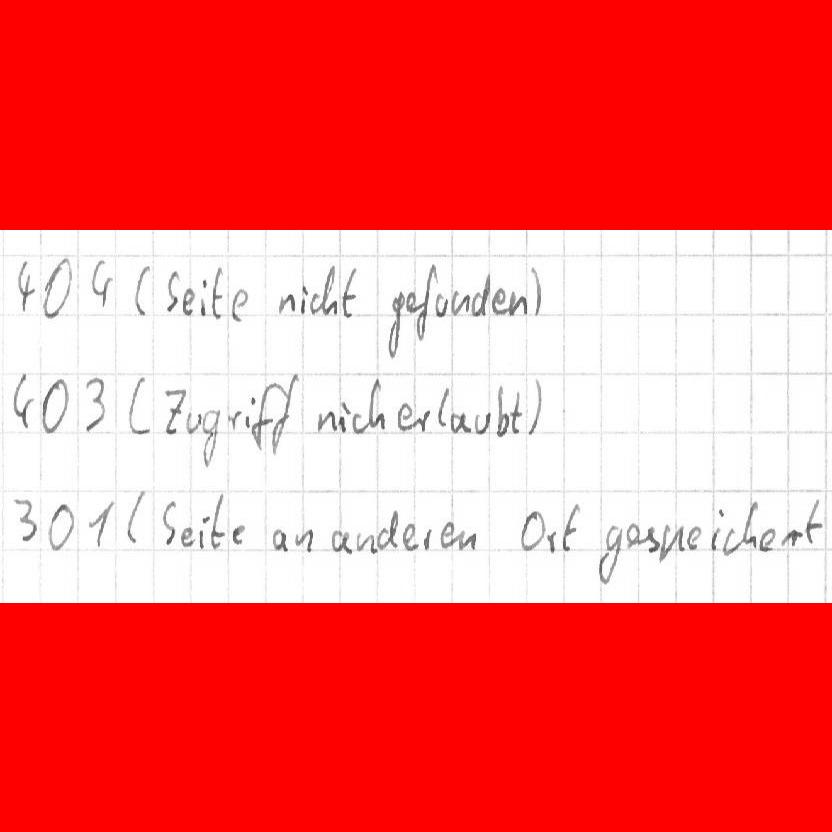 404 (Seite nicht gefunden)
403 (Zugriff nich erlaubt)
301 (Seite an anderen Ort gespeichert